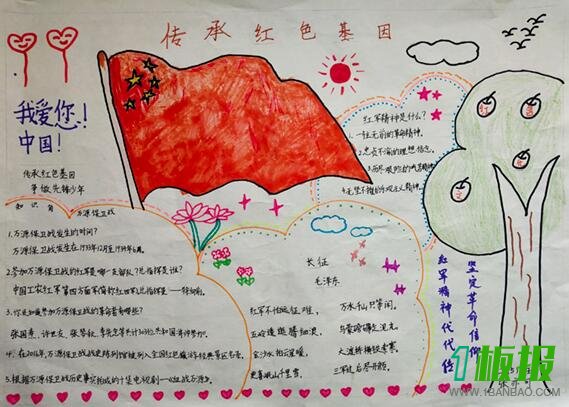 传承红色基因
我爱你!
中国!
传承红色基因
争做先锋少年
知识角
万源保卫战
1.万源保卫战发生的时间?
万源保卫战发生在1933年12月至1934年6月。
2.参加万源保卫战的红军是哪一支部队?总指挥是谁?
中国工农红军第四方面军(简称红四军)总指挥是——徐向前。
3.你是知道参加万源保卫战的革命前辈有哪些?
张国焘、许世友、张琴秋、李先念等
5.根据万源保卫战历史事实拍成的十集电视剧—《血战万源》。
红军精神是什么?
1.一往无前的革命精神。
2.忠贞不渝的理想信念。
4.无坚不摧的乐观主义精神。
红
色
基
因
长征
毛泽东
红军不怕远征难,
万水千山只等闲。
五岭逶迤腾细浪,
乌蒙磅礴走泥丸。
金沙水拍云崖暖,
大渡桥横铁索寒。
更喜岷山千里雪,
三军过后尽开颜。
坚定革命信仰
红军精神代代传
1板报
WWW.1BANBAO.COM